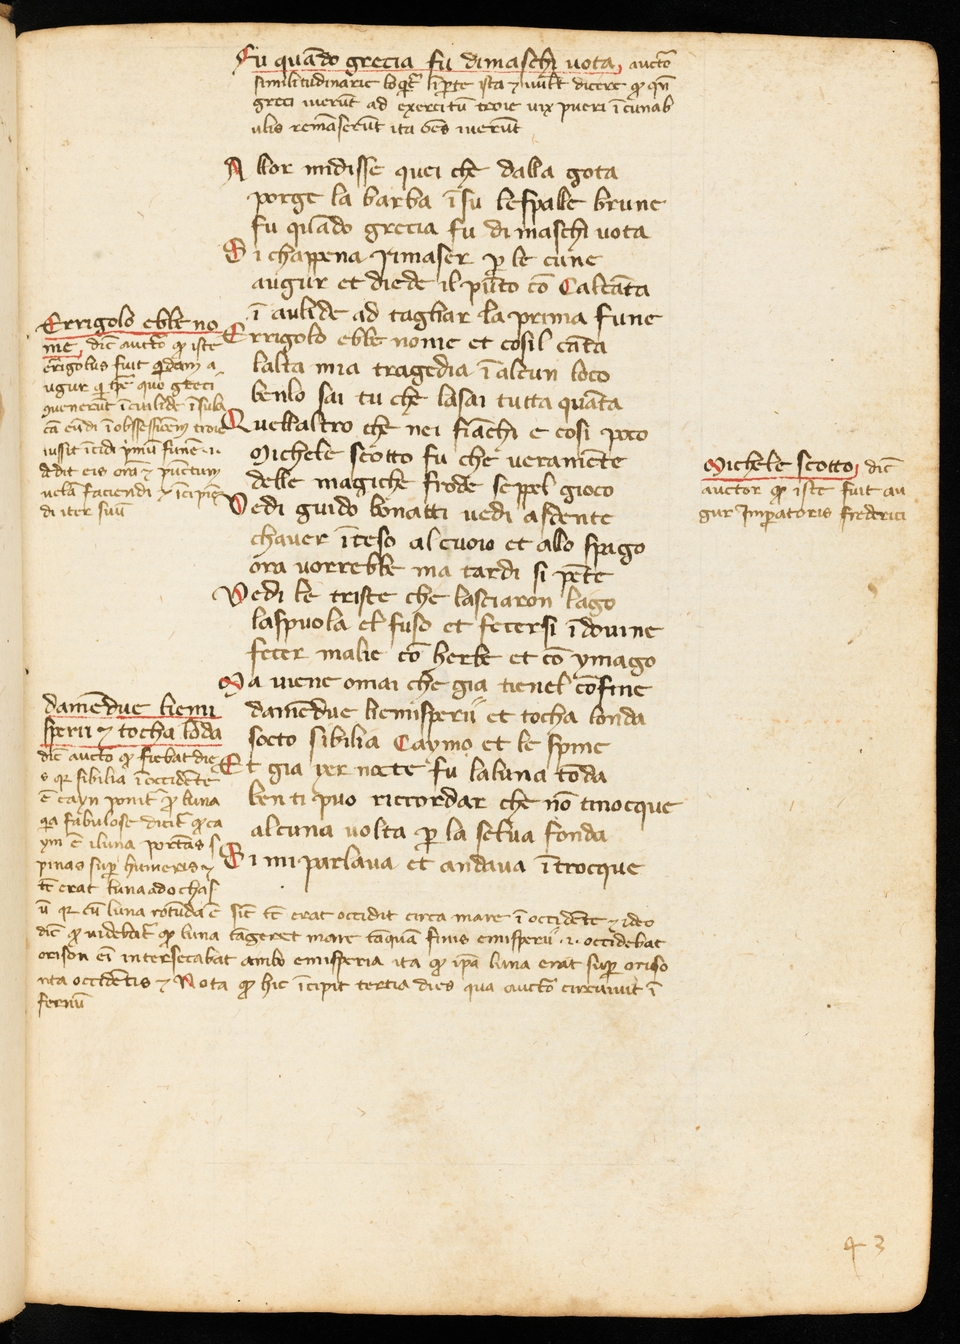 Fu quādo grecia fu dimaschi uota, auctō
similitudinarie loqt̄r ī pte ista ⁊ uult dicere ꝙ qn̄
greci iuerūt ad exercitū troie uix pueri ī cunab
ulis remāserūt ita oēs iuerūt
Allor midisse quei che dalla gota
porge la barba īsu lespalle brune
fu quādo grecia fu di maschi uota
Si chappena rimaser ꝑ le cune
augur et diede il pūto cō Calcāta
ī aulide ad tagliar la prima fune
Errigolo ebbe nome et cosil cāta
lalta mia tragedia ī alcun loco
benlo sai tu che lasai tutta quāta
Quellaltro che nei fiāchi e cosi poco
Michele scotto fu che ueramēte
delle magiche frode seppel gioco
Vedi guido bonatti uedi asdente
chauer īteso al cuoio et allo spago
ora uorrebbe ma tardi si pēte
Vedi le triste che lasciaron lago
laspuola el fuso et fecersi īdouine
fecer malie cō herbe et cō ymago
Ma uiene omai che gia tienel cōfine
damēdue hemisperii et tocha londa
socto sibilia Caymo et le spine
Et gia yer nocte fu laluna tōda
ben ti puo riccordar che nō tinocque
alcuna uolta ꝑ la selua fonda
Si mi parlaua et andaua ītrocque
Errigolo ebbe no
me, dic̄ auctō ꝙ iste
errigolus fuit qdam a
ugur
quo greci
ī aulide
troie
iussit īcidi pmū funē .i.
dedit eis orā ⁊ punctum
uelā faciendi ⁊ īcipiē
di iter suū
Michele scotto, dic̄
auctor ꝙ iste fuit au
gur Imperatoris frederici
damēdue hemi
sperii ⁊ tocha lōda
dic̄ auctō ꝙ fiebat die
s qr sibilia ī occidēte
ē cayn ponit̄ ꝓ luna
qia fabulose dicit̄ ꝙ ca
ym ē ī luna portās s
pinas suꝑ humeris ⁊
tc̄ erat luna ad ochas
ū qr cū luna rotūda ē sic̄ tc̄ erat occidit circa mare ī occidēte ⁊ ideo
dic̄ ꝙ uidebat̄ ꝙ luna tāgeret mare tāquā finis emisperii .i. occidebat
orison eī intersecabat ambo emisperia ita ꝙ ipā luna erat suꝑ oriso
nta occidētis ⁊ Nota ꝙ hic īcipit tertia dies qua auctō circuiuit ī
fernū
43